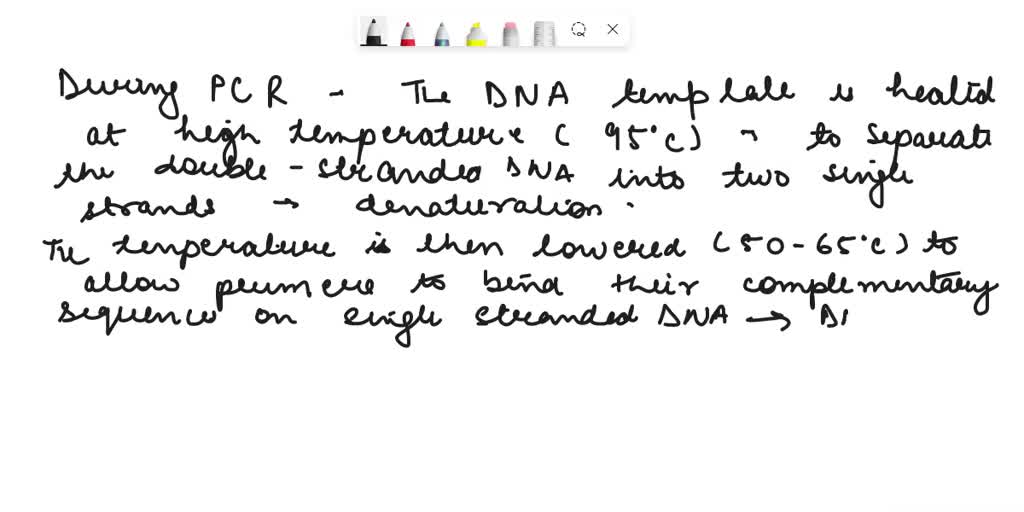 During PCR - The DNA template is heated
at high temperature ( 95°C) → to separate
the double-stranded DNA into two single
strands → denaturation.
The temperature is then lowered (50-65°C) to
allow primers to bind their complementary
sequence on single stranded DNA →